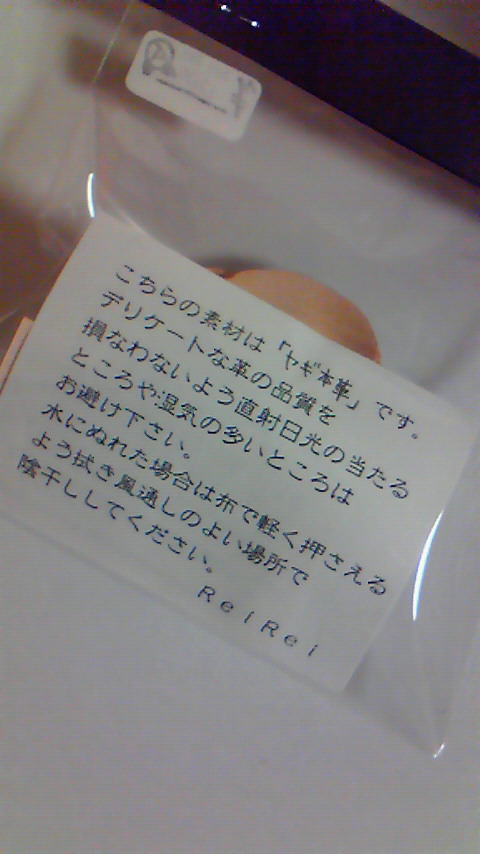 こちらの素材は「ヤギ本革」です。
デリケートな革の品質を
損なわないよう直射日光の当たる
ところや湿気の多いところは
お避け下さい。
水にぬれた場合は布で軽く押さえる
よう拭き風通しのよい場所で
陰干ししてください。
ReiRei